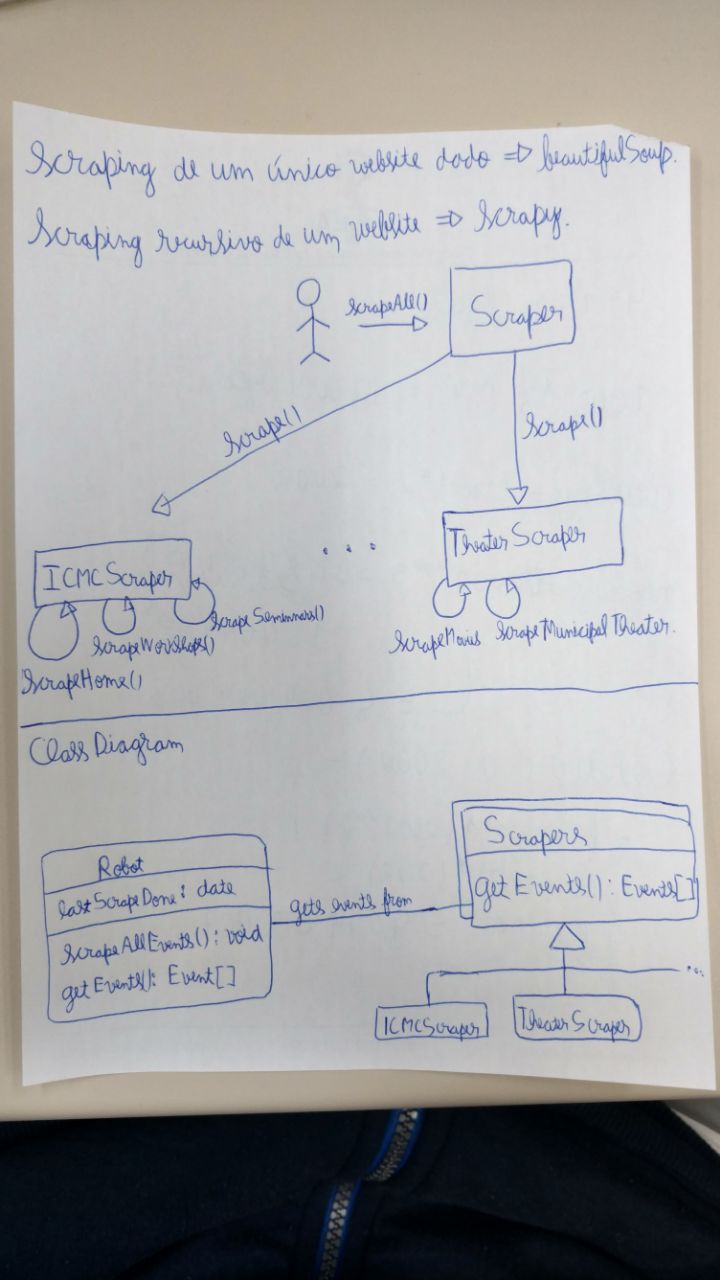 Scraping de um único website dado => beautifulSoup.
Scraping recursivo de um website => Scrapy.
ScrapeAll()
Scraper
Scrape()
Scrape()
ICMCScraper
...
TheaterScraper
ScrapeHome()
ScrapeWorkShops()
ScrapeSeminars()
ScrapeMovies
ScrapeMunicipalTheater.
Class Diagram
Robot
lastScrapeDone: date
ScrapeAllEvents(): void
getEvents(): Event[]
gets events from
Scrapers
getEvents(): Events[]
...
ICMCScraper
TheaterScraper